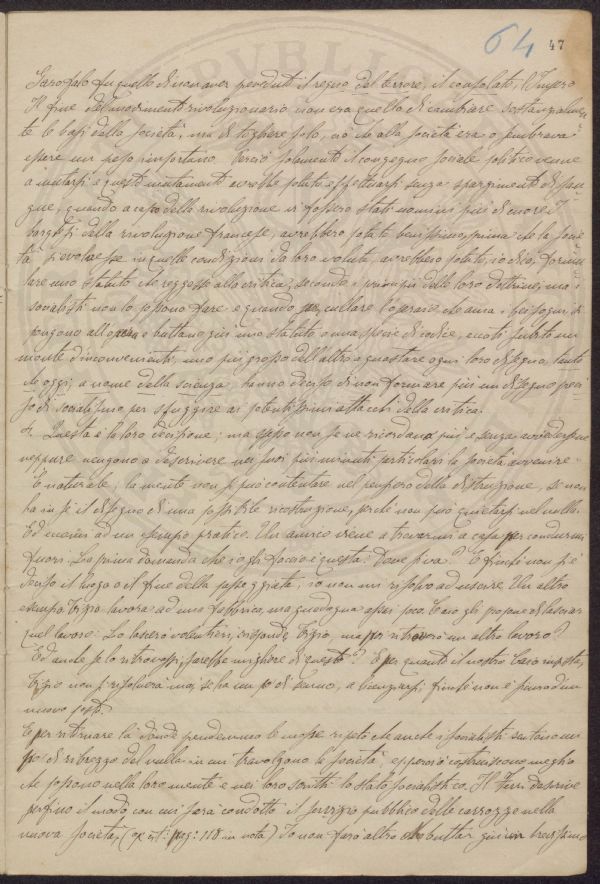 64 47
quello di non aver preveduti il regno del terrore, il consolato, l'Impero
Il fine del movimento rivoluzionario non era quello di cambiare sostanzialmen-
te le basi della società, ma di togliere solo, ciò che alla società era o sembrava
essere un peso inopportuno. Perciò solamente il congegno sociale politico venne
a mutarsi e questi mutamenti avrebbe potuto effettuarsi senza spargimento di san-
gue, quando a capo della rivoluzione vi fossero stati uomini più di cuore. I
borghesi della rivoluzione francese, avrebbero potuto benissimo, prima che la socie-
tà si evolvesse in quelle condizioni da loro volute, avrebbero potuto, io dico, formu-
lare uno statuto che reggesse alla critica, secondo i principi delle loro dottrine, ma i
socialisti non lo possono fare e quando per cullare l'operaio che ama i bei sogni si
pongono all'opera e buttano giù uno statuto o una specie di codice, ecco ti subito un
monte d'inconvenienti, uno più grosso dell'altro a guastare ogni loro disegno, tanto
che oggi, a nome della scienza, hanno deciso di non formare più un disegno preci-
so di socialismo per sfuggire ai potentissimi attacchi della critica.
Questa è la loro decisione; ma essi non se ne ricordano più e senza avvedersene
neppure vengono a descrivere nei suoi più minuti particolari la società avvenire.
È naturale, la mente non si può contentare nel pensiero della distruzione, se non
ha in sé il disegno di una possibile ricostruzione, perché non può quietarsi nel nulla.
Ed eccoci ad un esempio pratico. Un amico viene a trovarmi a casa per condurmi
fuori. La prima domanda che io gli faccio è questa: Dove si va? E finché non si è
deciso il luogo o il fine della passeggiata, io non mi risolvo ad uscire. Un altro
esempio. Tizio lavora ad una fabbrica, ma guadagna assai poco. Caio gli propone di lasciar
quel lavoro. Lo lascerò volentieri, risponde Tizio, ma poi ritroverò un altro lavoro?
Ed anche se lo ritrovassi, sarebbe migliore di questo? E per quanto il nostro Caio insista,
Tizio non si risolverà mai, se ha un po' di senno, a licenziarsi finché non è sicuro d'un
nuovo posto.
E per ritornare là donde prendemmo le mosse ripeto che anche i socialisti sentono un
po' di ribrezzo del nulla in cui travolgono la società, epperciò costruiscono meglio
che possono nella loro mente e nei loro scritti lo stato socialistico. Il Ferri descrive
perfino il modo con cui sarà condotto il servizio pubblico delle carrozze nella
nuova società, (op. cit. pag. 118 in nota) Io non farò altro che buttar giù in brevissimo